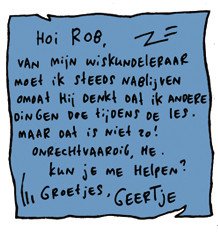 HOI ROB,
VAN MIJN WISKUNDELERAAR
MOET IK STEEDS NABLIJVEN
OMDAT HIJ DENKT DAT IK ANDERE
DINGEN DOE TIJDENS DE LES.
MAAR DAT IS NIET ZO!
ONRECHTVAARDIG, HE.
KUN JE ME HELPEN?
GROETJES, GEERTJE